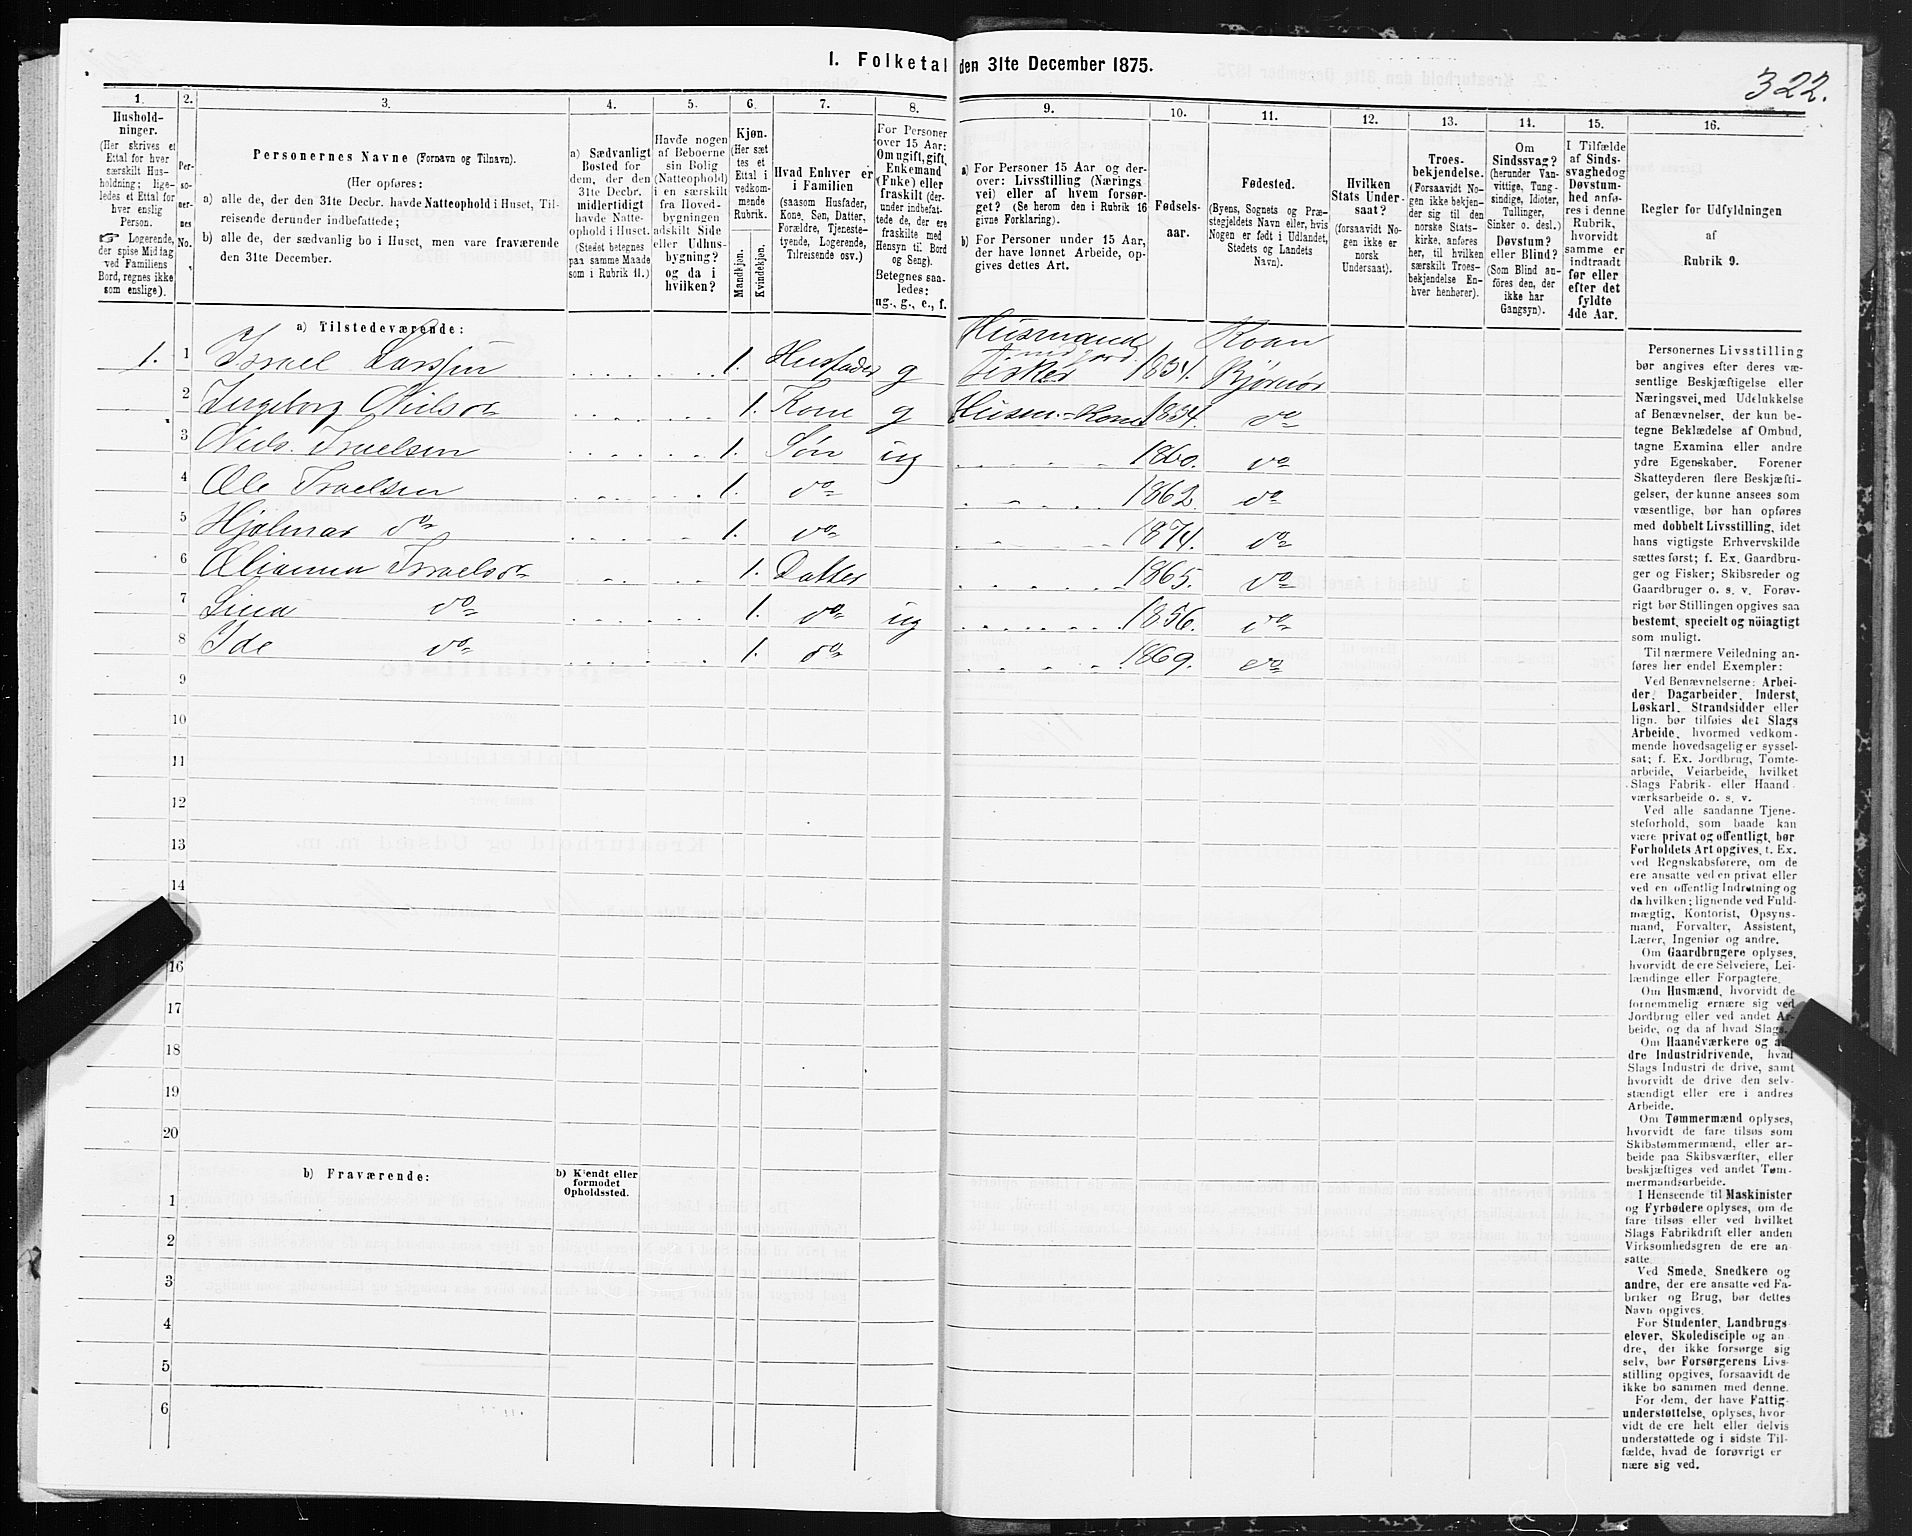 1. Folketal den 31te December 1875.
322.
1.
2.
3.
4.
5.
6.
7.
8.
9.
10.
11.
12.
13.
14.
15.
16.
Hushold-
ninger.
(Her skrives et
Ettal for hver
særskilt Hus-
holdning; lige-
ledes et Ettal for
hver enslig
Person.
☞ Logerende,
der spise Middag
ved Familiens
Bord, regnes ikke
som enslige).
Per-
so-
ner-
nes
No.
Personernes Navne (Fornavn og Tilnavn).
(Her opføres:
a) alle de, der den 31te Decbr. havde Natteophold i Huset, Til-
reisende derunder indbefattede;
b) alle de, der sædvanlig bo i Huset, men vare fraværende
den 31te December.
a) Sædvanligt
Bosted for
dem, der den
31te Decbr.
midlertidigt
havde Natte-
ophold i Huset.
(Stedet betegnes
paa samme Maade
som i Rubrik 11.)
Havde nogen
af Beboerne
sin Bolig
(Natteophold)
i en særskilt
fra Hoved-
bygningen
adskilt Side
eller Udhus-
bygning?
og da i
hvilken?
Kjøn.
(Her sæt
tes et
Ettal i
vedkom-
mende
Rubrik.
Mandkjøn.
Kvindekjøn.
Hvad Enhver er
i Familien
(saasom Husfader,
Kone, Søn, Datter,
Forældre, Tjeneste-
tyende, Logerende,
Tilreisende osv.)
For Personer
over 15 Aar:
Om ugift, gift,
Enkemand
(Enke) eller
fraskilt (der-
under indbefat-
tede de, der ere
fraskilte med
Hensyn til Bord
og Seng).
Betegnes saa-
ledes:
ug., g., e., f.
a) For Personer 15 Aar og der-
over: Livsstilling (Nærings
vei) eller af hvem forsør-
get? (Se herom den i Rubrik 16
givne Forklaring).
b) For Personer under 15 Aar,
der have lønnet Arbeide, op-
gives dettes Art.
Fødsels-
aar.
Fødested.
(Byens, Sognets og Præ-
stegjeldets Navn eller, hvis
Nogen er født i Udlandet,
Stedets og Landets
Navn).
Hvilken
Stats Under-
saat?
(forsaavidt No-
gen ikke er
norsk
Undersaat).
Troes-
bekjendelse.
(Forsaavidt No-
gen ikke bekjen-
der sig til den
norske Stats-
kirke, anføres
her, til hvilken
særskilt Troes-
bekjendelse En-
hver henhører).
Om
Sindssvag?
(herunder Van-
vittige, Tung-
sindige, Idioter,
Tullinger,
Sinker o. desl.)
Døvstum?
eller Blind?
(Som Blind an-
føres den, der
ikke har
Gangsyn).
I Tilfælde
af Sinds-
svaghed og
Døvstum-
hed anfø-
res i denne
Rubrik,
hvorvidt
samme er
indtraadt
før eller
efter det
fyldte
4de Aar.
Regler for Udfyldningen
af
Rubrik 9.
a) Tilstedeværende:
1. 1 Israel Larssen 1. Husfader g Husmand med Jord. Fisker 1834. Roan Bjørnør
2 Ingeborg Nielsdr 1. Kone g Husm.-Kone 1834. do
3 Niels Israelsen 1. Søn ug 1860. do
4 Ole Israelsen 1. do 1862. do
5 Hjalmar do 1. do 1874. do
6 Olianna Israelsdr 1. Datter 1865. do
7 Lina do 1. do ug 1856. do
8 Ide do 1. do 1869. do
9
10
11
12
13
14
16
17
18
19
20
b) Fraværende:
b) Kjendt eller
formodet
Opholdssted.
1
2
3
4
5
6
Personernes Livsstilling
bør angives efter deres væ-
sentlige Beskjæftigelse eller
Næringsvei med Udelukkelse
af Benævnelser, der kun be-
tegne Beklædelse af Ombud,
tagne Examina eller andre
ydre Egenskaber. Forener
Skatteyderen flere Beskjæfti-
gelser, der kunne ansees som
væsentlige, bør han opføres
med dobbelt Livsstilling, idet
hans vigtigste Erhvervskilde
sættes først; f. Ex. Gaardbru-
ger og Fisker; Skibsreder og
Gaardbruger o. s. v. Forøv-
rigt bør Stillingen opgives saa
bestemt, specielt og nöiagtigt
som muligt.
Til nærmere Veiledning an-
føres her endel Exempler:
Ved Benævnelserne: Arbei-
der, Dagarbeider, Inderst,
Løskarl, Strandsidder eller
lign. bør tilføies det Slags
Arbeide, hvormed vedkom-
mende hovedsagelig er syssel-
sat; f. Ex. Jordbrug, Tomte-
arbeide, Veiarbeide, hvilket
Slags Fabrik- eller Haand
værksarbeide o. s. v.
Ved alle saadanne Tjene-
steforhold, som baade kan
være privat og offentligt, bør
Forholdets Art opgives, t. Ex.
ved Regnskabsførere, om de
ere ansatte ved en privat eller
ved en offentlig Indretning og
da hvilken; lignende ved Fuld-
mægtig, Kontorist, Opsyns-
mand, Forvalter, Assistent,
Lærer, Ingeniør og andre.
Om Gaardbrugere oplyses,
hvorvidt de ere Selveiere, Lei-
lændinge eller Forpagtere.
Om Husmænd, hvorvidt de
fornemmelig ernære sig ved
Jordbrug eller ved andet Ar-
beide, og da af hvad Slags.
Om Haandværkere og an-
dre Industridrivende, hvad
Slags Industri de drive, samt
hvorvidt de drive den selv-
stændigt eller ere i andres
Arbeide.
Om Tømmermænd oplyses,
hvorvidt de fare tilsøs som
Skibstømmermænd, eller ar-
beide paa Skibsværfter, eller
beskjæftiges ved andet Tøm-
mermandsarbeide.
I Henseende til Maskinister
og Fyrbødere oplyses, om de
fare tilsøs eller ved hvilket
Slags Fabrikdrift eller anden
Virksomhedsgren de ere an-
satte.
Ved Smede, Snedkere og
andre, der ere ansatte ved Fa-
briker og Brug, bør dettes
Navn opgives.
For Studenter, Landbrugs
elever, Skoledisciple og an
dre, der ikke forsørge sig
selv, bør Forsørgerens Livs-
stilling opgives, forsaavidt de
ikke bo sammen med denne.
For dem, der have Fattig-
understøttelse, oplyses, hvor-
vidt de ere helt eller delvis
understøttede og i sidste Til-
fælde, hvad de forøvrigt er
nære sig ved.